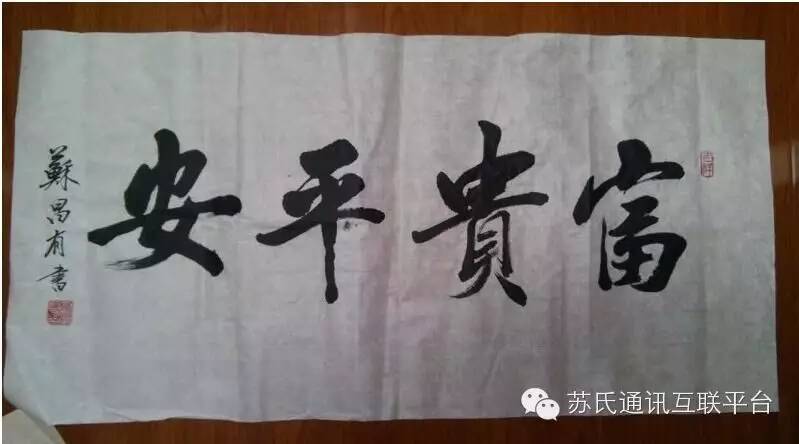 富貴平安
蘇昌有書
苏氏通讯互联平台